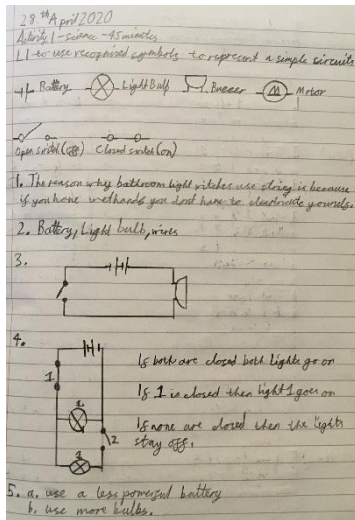 28th April 2020
Activity 1 - science - 45 minutes
LI - to use recognised symbols to represent a simple circuits
Battery Light Bulb Buzzer M Motor
Open switch (off) Closed switch (on)
1. The reason why bathroom light switches use string is because
if you have wet hands you dont have to electricute yourself.
2. Battery, Light bulb, wires
3.
4.
1 1. 2 2
If both are closed both lights go on
If 1 is closed then light 1 goes on
If none are closed then the lights
stay off.
5. a. use a less powerful battery
b. use more bulbs.